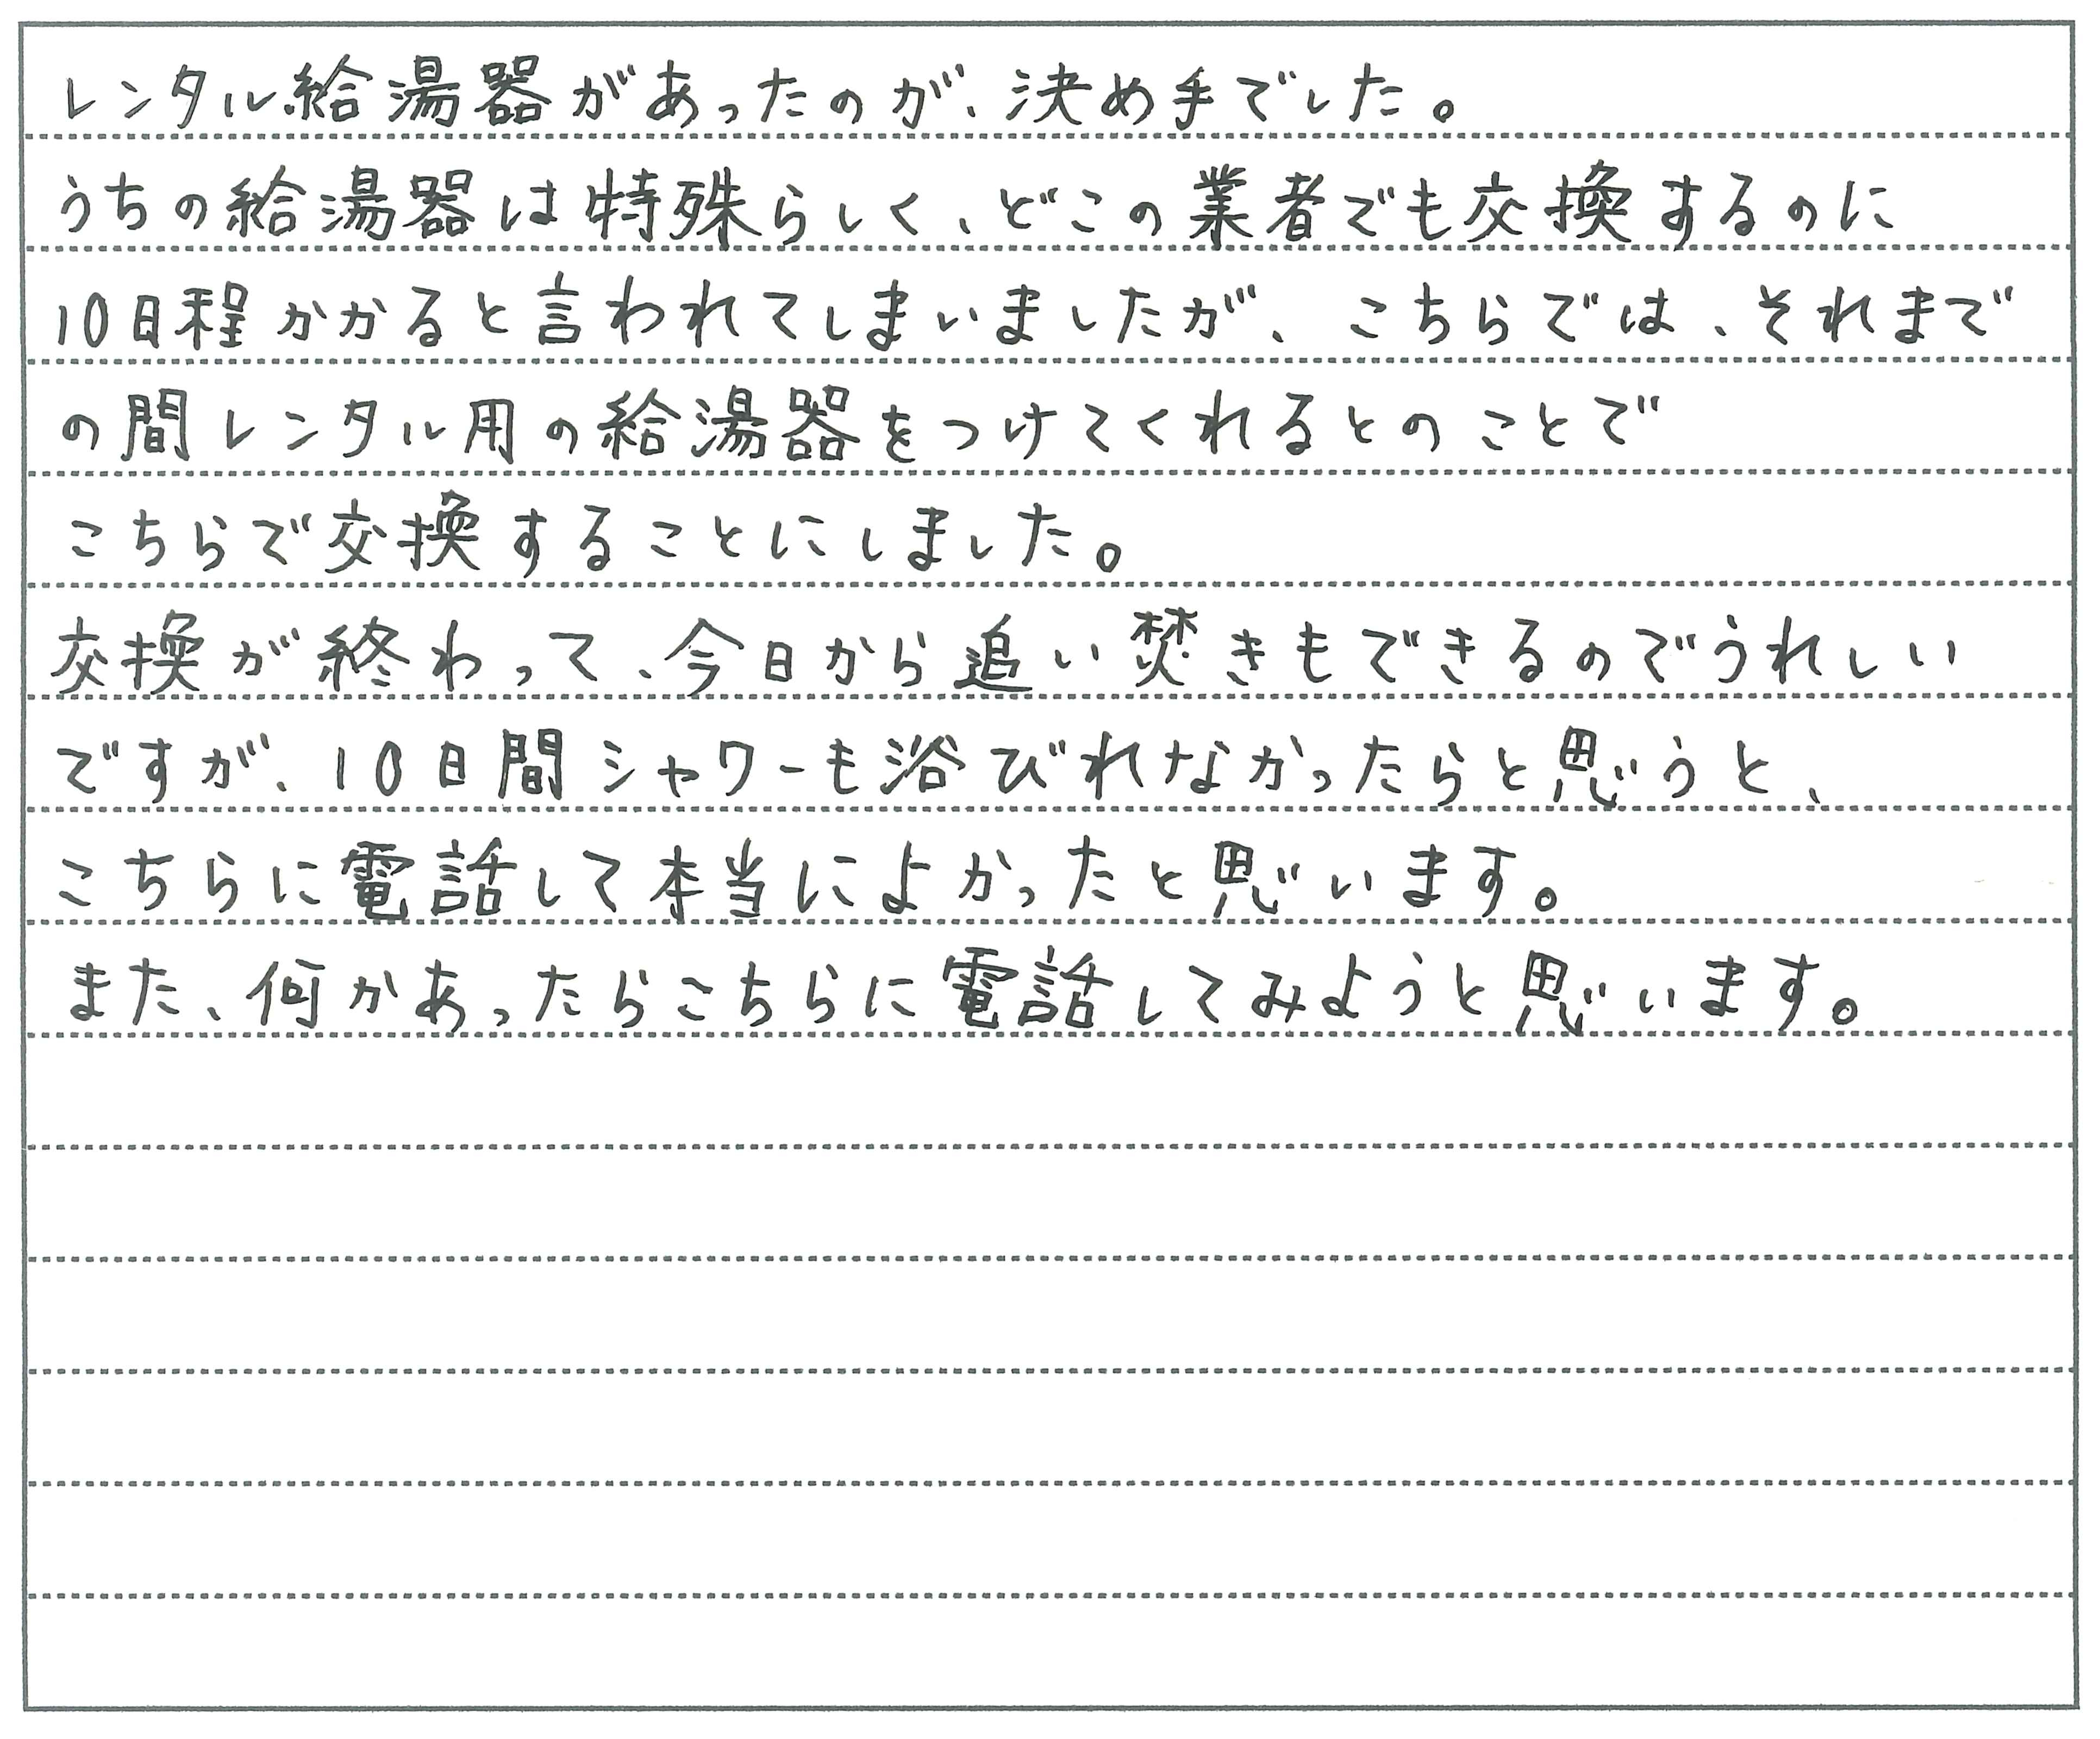 レンタル給湯器があったのが、決め手でした。
うちの給湯器は特殊らしく、どこの業者でも交換するのに
10日程かかると言われてしまいましたが、こちらでは、それまで
の間レンタル用の給湯器をつけてくれるとのことで
こちらで交換することにしました。
交換が終わって、今日から追い焚きもできるのでうれしい
ですが、10日間シャワーも浴びれなかったらと思うと、
こちらに電話して本当によかったと思います。
また、何かあったらこちらに電話してみようと思います。